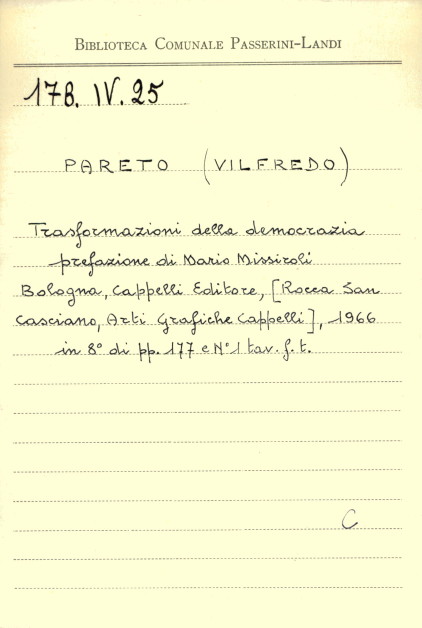 BIBLIOTECA COMUNALE PASSERINI-LANDI
178. IV. 25
PARETO (VILFREDO)
Trasformazioni della democrazia
prefazione di Mario Missiroli
Bologna, Cappelli Editore, [Rocca San
Casciano, Arti Grafiche Cappelli], 1966
in 8° di pp. 177 e N° 1 tav. f. t.
C